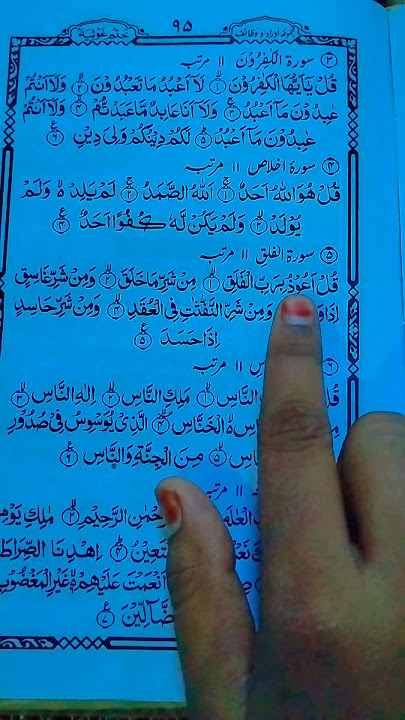 ختم غوثیہ ۹۵ اوراد و وظائف
③ سورة الکٰفرون ۱۱ مرتبہ
قُلْ يٰٓاَيُّهَا الْكٰفِرُوْنَ ① لَآ اَعْبُدُ مَا تَعْبُدُوْنَ ② وَلَآ اَنْتُمْ
عٰبِدُوْنَ مَآ اَعْبُدُ ③ وَلَآ اَنَا عَابِدٌ مَّا عَبَدْتُّمْ ④ وَلَآ اَنْتُمْ
عٰبِدُوْنَ مَآ اَعْبُدُ ⑤ لَكُمْ دِيْنُكُمْ وَلِيَ دِيْنِ ⑥
④ سورة اخلاص ۱۱ مرتبہ
قُلْ هُوَ اللّٰهُ اَحَدٌ ① اَللّٰهُ الصَّمَدُ ② لَمْ يَلِدْ ەۙ وَلَمْ
يُوْلَدْ ③ وَلَمْ يَكُنْ لَّهٗ كُفُوًا اَحَدٌ ④
⑤ سورة الفلق ۱۱ مرتبہ
قُلْ اَعُوْذُ بِرَبِّ الْفَلَقِ ① مِنْ شَرِّ مَا خَلَقَ ② وَمِنْ شَرِّ غَاسِقٍ
اِذَا وَمِنْ شَرِّ النَّفّٰثٰتِ فِي الْعُقَدِ ④ وَمِنْ شَرِّ حَاسِدٍ
اِذَا حَسَدَ ⑤
⑥ ۱۱ مرتبہ
النَّاسِ ① مَلِكِ النَّاسِ ② اِلٰهِ النَّاسِ ③
الْخَنَّاسِ ④ الَّذِيْ يُوَسْوِسُ فِيْ صُدُوْرِ
⑤ مِنَ الْجِنَّةِ وَالنَّاسِ ⑥
۱۱ مرتبہ
الرَّحِيْمِ ② مٰلِكِ يَوْمِ
④ اِهْدِنَا الصِّرَاطَ
اَنْعَمْتَ عَلَيْهِمْ ەۙ غَيْرِ الْمَغْضُوْبِ
⑦